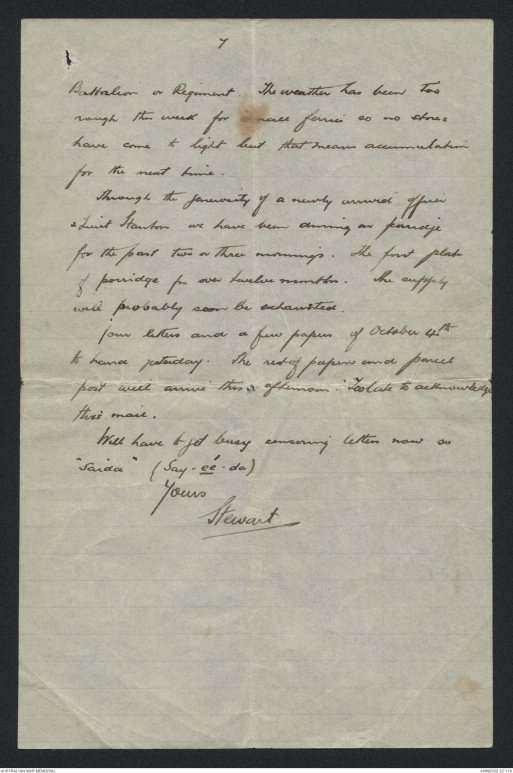 7
Battalion or Regiment. The weather has been too
rough this week for small ferries so no stores
have come to light but that means accumulation
for the next time.
Through the generosity of a newly arrived officer
Lieut Stanton we have been dining on porridge
for the past two or three mornings. The first plate
of porridge for over twelve months. The supply
will probably soon be exhausted.
Your letters and a few papers of October 4th
to hand yesterday. The rest of papers and parcel
post will arrive this afternoon. Too late to acknowledge
this mail.
Will have to get busy censoring letters now so
"Saida" (Say-ee-da)
Yours
Stewart
AUSTRALIAN WAR MEMORIAL